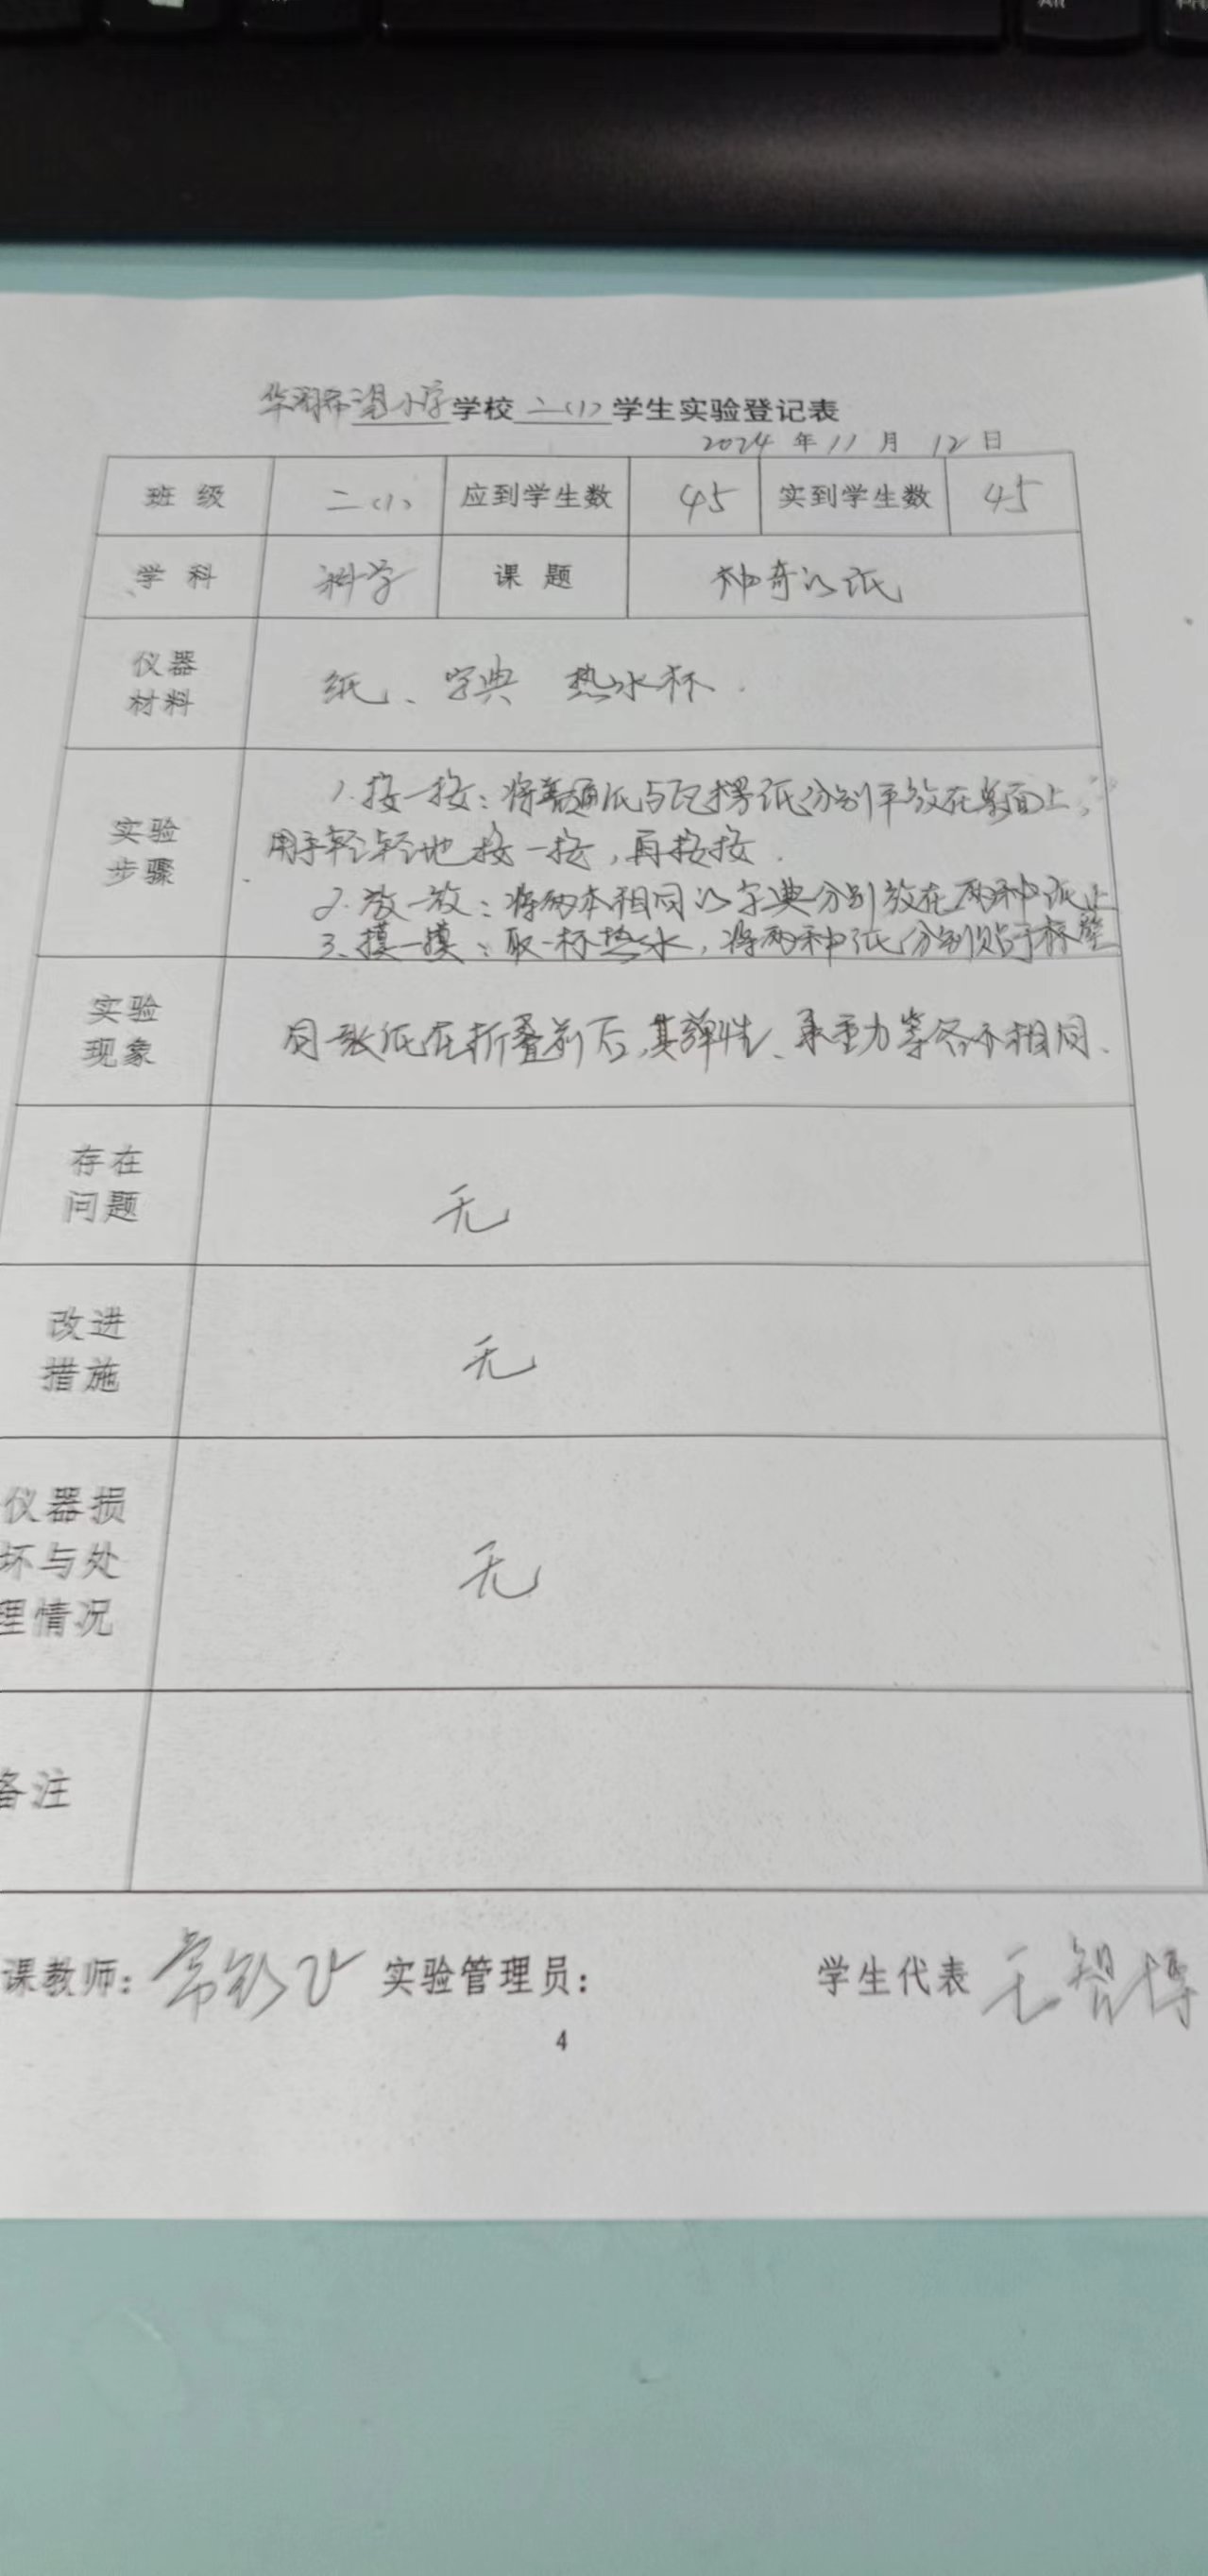 华润希望小学学校二(1)学生实验登记表
2024年11月12日
班级 二(1) 应到学生数 45 实到学生数 45
学科 科学 课题 神奇的纸
仪器
材料
纸、字典 热水杯.
实验
步骤
1.按一按:将普通纸与瓦楞纸分别平放在桌面上,
用手轻轻地按一按,再按按.
2.放一放:将两本相同的字典分别放在两种纸上
3.摸一摸:取一杯热水,将两种纸分别贴于杯壁
实验
现象
同张纸在折叠前后,其弹性、承重力等各不相同、
存在
问题
无
改进
措施
无
仪器损
坏与处
理情况
无
备注
课教师: 实验管理员: 学生代表
4